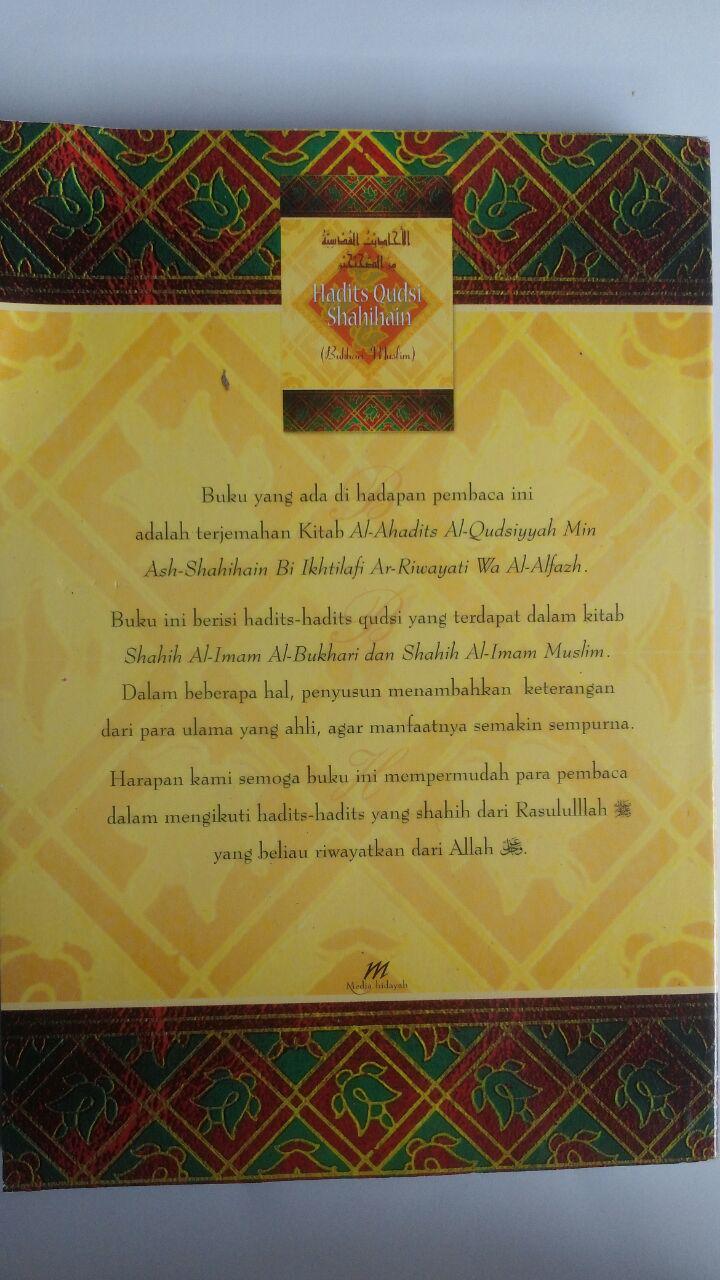 الأحاديث القدسية
من الصحيحين
Hadits Qudsi
Shahihain
(Bukhari Muslim)
Buku yang ada di hadapan pembaca ini
adalah terjemahan Kitab Al-Ahadits Al-Qudsiyyah Min
Ash-Shahihain Bi Ikhtilafi Ar-Riwayati Wa Al-Alfazh.
Buku ini berisi hadits-hadits qudsi yang terdapat dalam kitab
Shahih Al-Imam Al-Bukhari dan Shahih Al-Imam Muslim.
Dalam beberapa hal, penyusun menambahkan keterangan
dari para ulama yang ahli, agar manfaatnya semakin sempurna.
Harapan kami semoga buku ini mempermudah para pembaca
dalam mengikuti hadits-hadits yang shahih dari Rasululllah ﷺ
yang beliau riwayatkan dari Allah.
m
Media hidayah